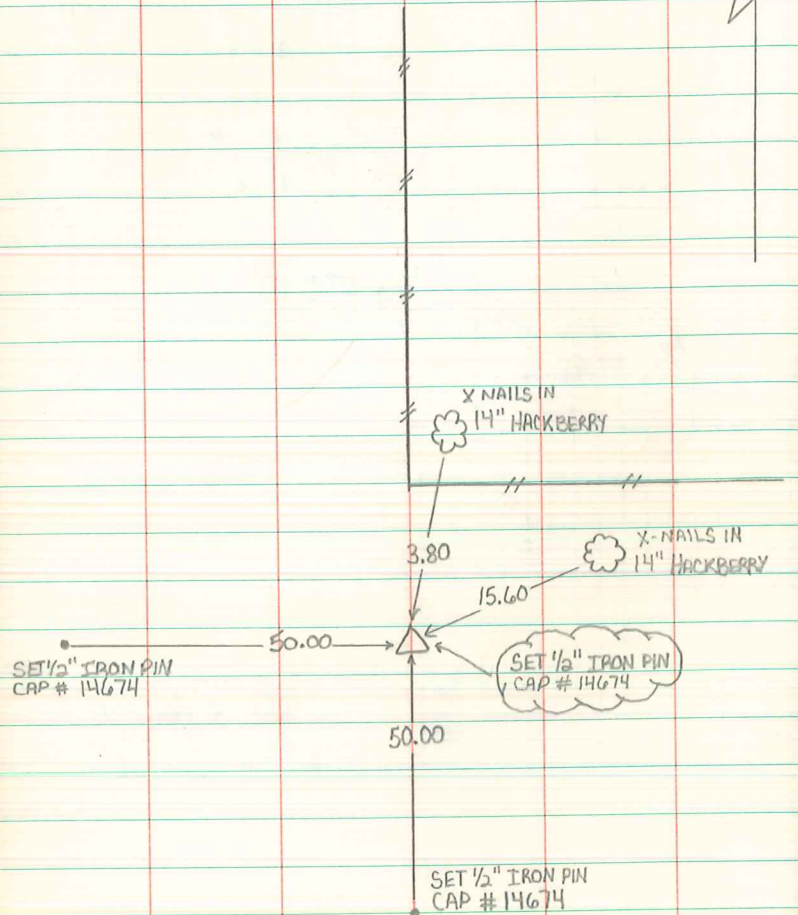 X NAILS IN
14" HACKBERRY
3.80
X-NAILS IN
14" HACKBERRY
15.60
50.00
SET 1/2" IRON PIN
CAP # 14674
SET 1/2" IRON PIN
CAP # 14674
50.00
SET 1/2" IRON PIN
CAP # 14674